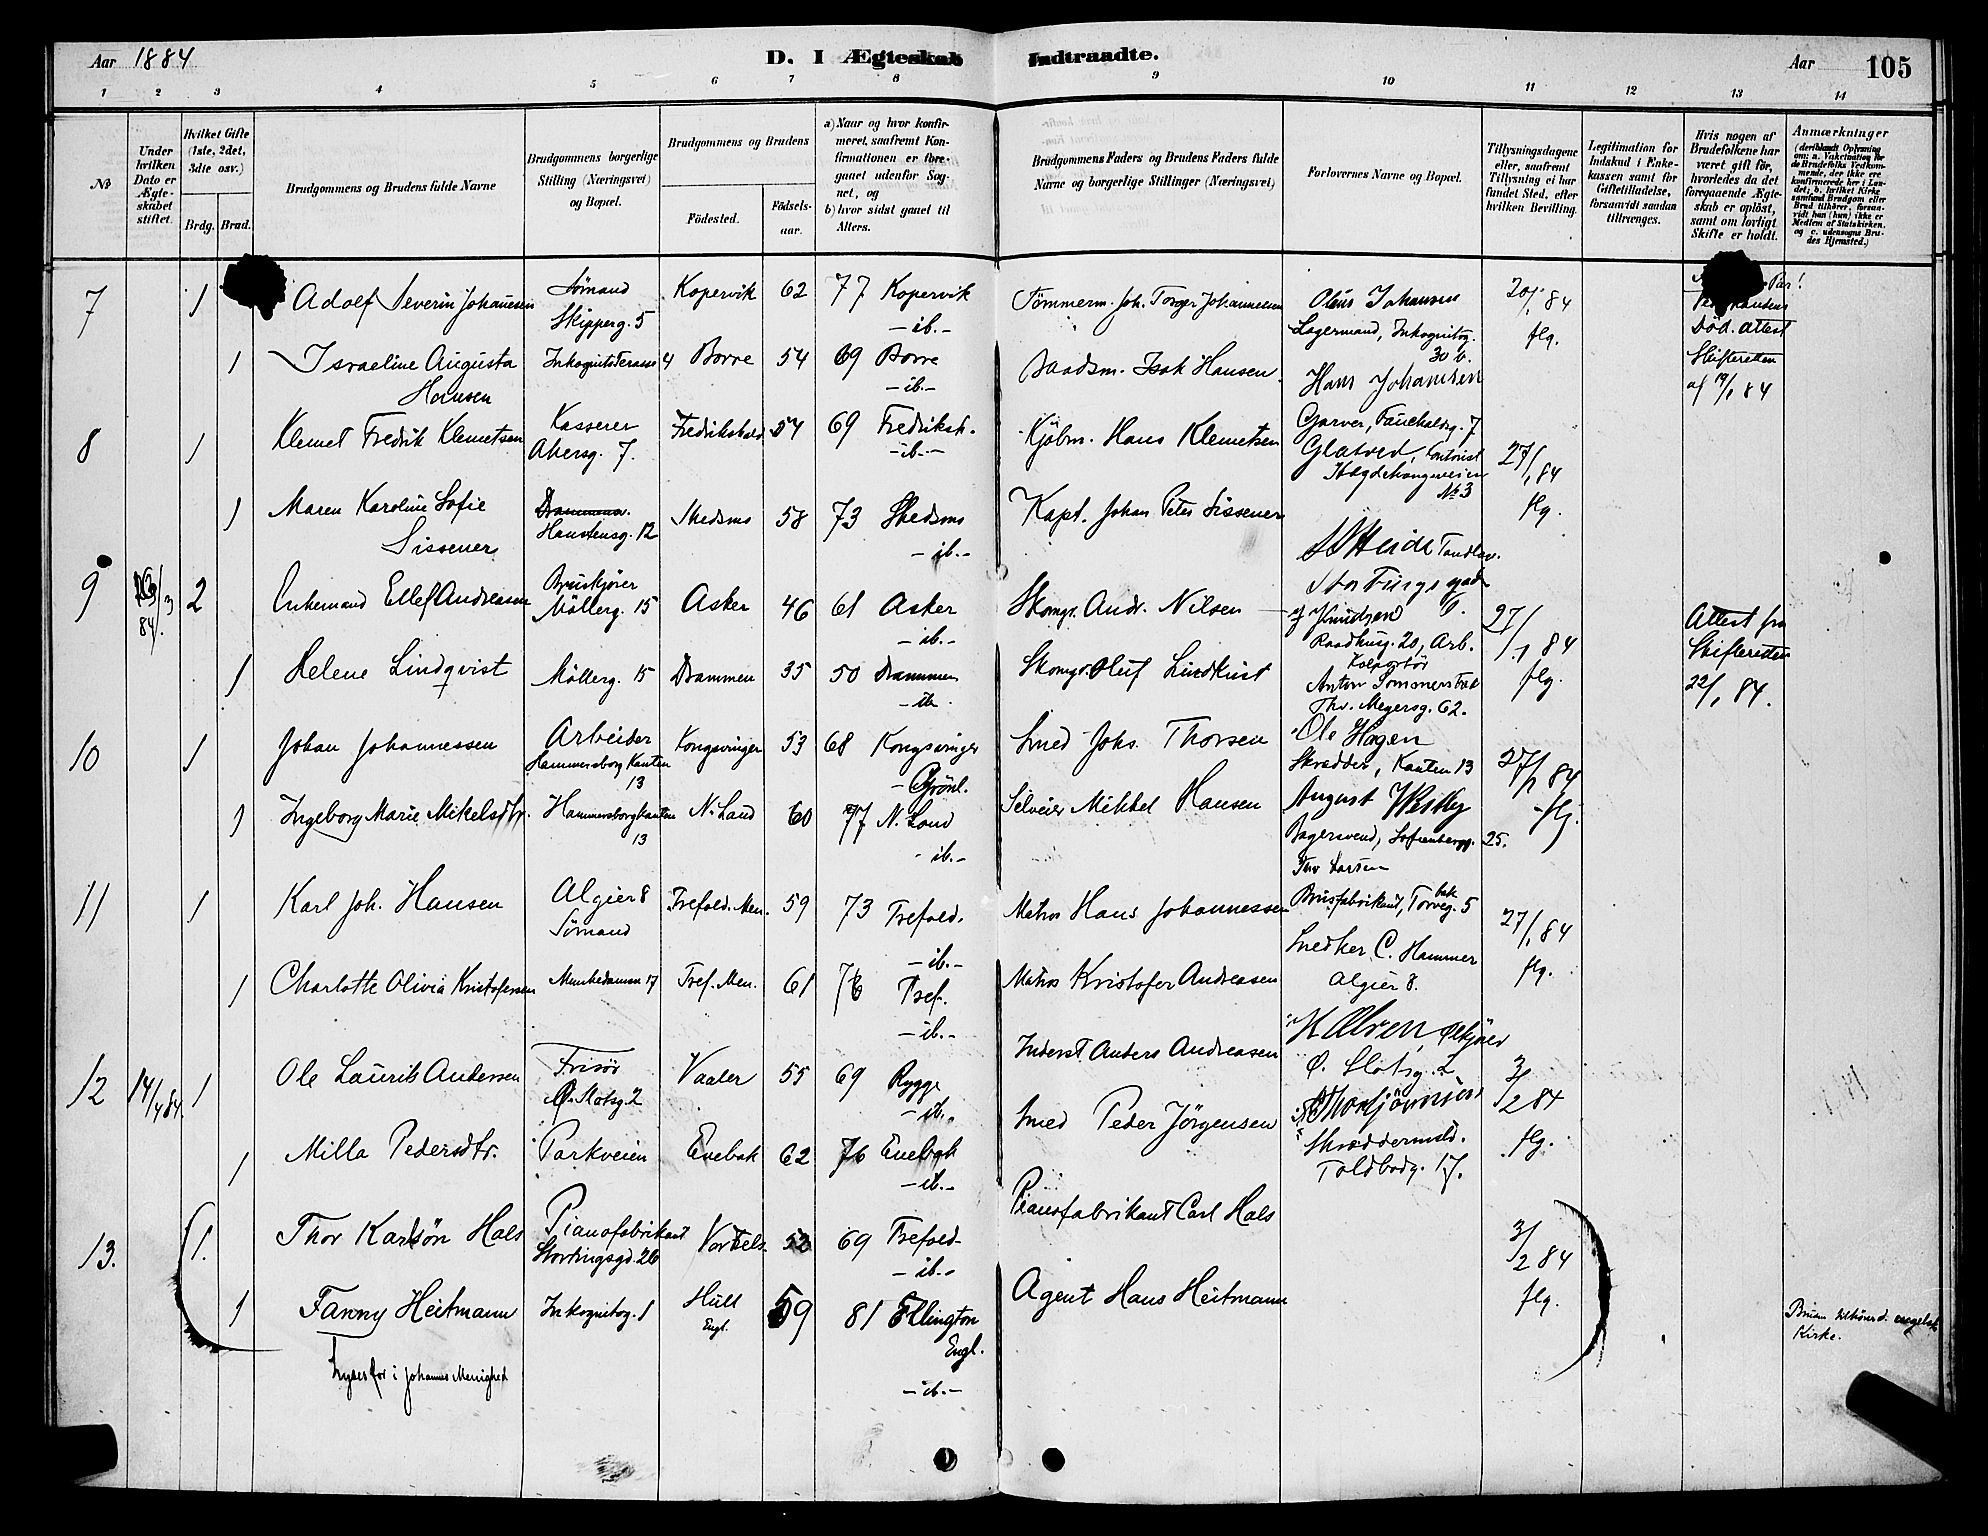 Aar 1884
D. I Ægteskab Indtraadte.
Aar 105
1 2 3 4 5 6 7 8 9 10 11 12 13 14
No
Under hvilken Dato er Ægteskabet stiftet.
Hvilket Gifte (1ste, 2det, 3die osv.)
Brdg. Brud.
Brudgommens og Brudens fulde Navne
Brudgommens borgerlige Stilling (Næringsvei) og Bopæl.
Brudgommens og Brudens
Födested.
Födselsaar.
a) Naar og hvor konfirmeret, saafremt Konfirmationen er foregaaet udenfor Sognet, og
b) hvor sidst gaaet til Alters.
Brudgommens Faders og Brudens Faders fulde Navne og borgerlige Stillinger (Næringsvei)
Forlovernes Navne og Bopæl.
Tillysningsdagene eller, saafremt Tillysning ei har fundet Sted, efter hvilken Bevilling.
Legitimation for Indskud i Enkekassen samt for Giftetilladelse, forsaavidt saadan tiltrænges.
Hvis nogen af Brudefolkene har været gift för, hvorledes da det foregaaende Ægteskab er oplöst, samt om lovligt Skifte er holdt.
Anmærkninger
(deriblandt Oplysning om: a. Vakcination for de Brudefolks Vedkommende, der ikke ere konfirmerede her i Landet; b. hvilket Kirkesamfund Brudgom eller Brud tilhörer, forsaavidt han (hun) ikke er Medlem af Statskirken, og c. udensogns Brudes Hjemsted.)
7 1 Adolf Severin Johansen Sømand Kopervik 62 77 Kopervik Tømmerm. Joh. Torger Johannesen Olaus Johansen 20/1 84
Skipperg. 5 -ib.- Lagermand, Inkognitog. 30 b. flg. Död. attest
1 Israeline Augusta Hansen Inkognitoterasse 4 Borre 54 69 Borre -ib.- Baadsm. Isak Hansen. Hans Johansen Skifteretten af 19/1 84
8 1 Klemet Fredrik Klemetsen Kasserer Akersg. 7. Fredrikshald 54 69 Fredriksh. -ib.- Kjøbm. Hans Klemetsen Garver, 7
Glatved, Kontorist Hægdehaugsveien No 3 27/1 84 flg.
1 Maren Karoline Sofie Sissener Drammen. Hauslensg. 12 Skedsmo 58 73 Skedsmo -ib.- Kapt. Johan Peter Sissener
9 /3 84. 2 Enkemand Ellef Andreasen Bruskjører Möllerg. 15 Asker 46 61 Asker -ib.- Skomgr. Andr. Nilsen Knudsen Raadhusg. 20, Arb. 27/1 84 flg. Attest fra Skifteretten 22/1 84.
1 Helene Lindqvist Möllerg. 15 Drammen 35 50 Drammen -ib- Skomgr. Oluf Lindkvist Kolportör Anton Sommerstad Thv. Meyersg. 62.
10 1 Johan Johannessen Arbeider Hammersborg Kanten 13 Kongsvinger 53 68 Kongsvinger - Grönl. Smed Johs. Thorsen Ole Hagen Skrædder, Kanten 13 27/1 84 flg.
1 Ingeborg Marie Mikelsdtr. Hammersborgkanten 13 N. Land 60 77 N. Land -ib.- Selveier Mikkel Hansen August Bagersvend, Sofienbergg. 25.
11 1 Karl Joh. Hansen Algier 8 Sømand Trefold. Men. 59 73 Trefold. -ib.- Matros Hans Johannessen Thv Larsen Brusfabrikant, Torveg. 5 27/1 84 flg.
1 Charlotte Olivia Kristofersen Munkedammen 17 Tref. Men. 61 76 Tref. -ib.- Matros Kristofer Andreasen Snedker C. Hammer Algier 8.
12 14/4 84 1 Ole Laurits Andersen Frisör Ø. Slotsg. 2 Vaaler 55 69 Rygge -ib.- Inderst Anders Andreasen Ø. Slotsg. 2 3/2 84 flg.
1 Milla Pedersdtr. Parkveien Enebak 62 76 Enebak -ib.- Smed Peder Jörgensen Skræddermstr. Toldbodg. 17.
13. 1. Thor Karlsön Hals Pianofabrikant Stortingsgd. 26 Vor Frels. 52 69 Trefold- -ib.- Pianofabrikant Carl Hals 3/2 84 flg.
1 Fanny Heitmann Inkognitog. 1 Hull Engl. 59 81 Ellington Engl. -ib.- Agent Hans Heitmann Bruden tilhörer d. engelsk Kirke.
Lyses for i Johannes Menighed